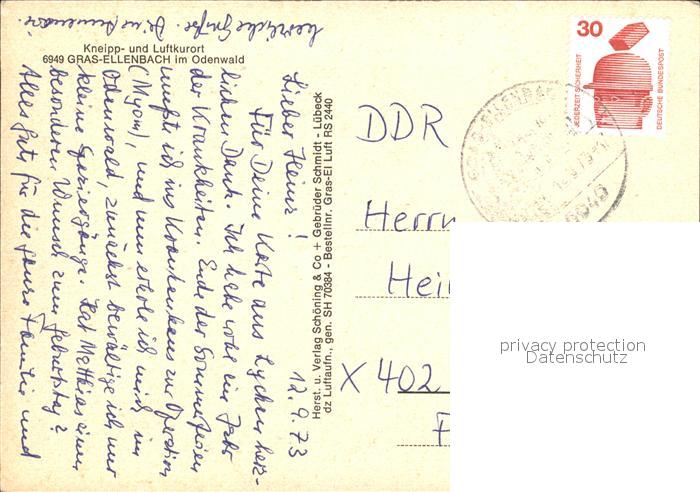 Kneipp- und Luftkurort
6949 GRAS-ELLENBACH im Odenwald
12.9.73
Lieber Heinz!
Für Deine Karte aus Lychen herz-
lichen Dank. Ich habe wohl ein Jahr
der Krankheiten. Ende der Sommerferien
mußte ich ins Krankenhaus zur Operation
(Myom), und nun erhole ich mich im
Odenwald, zunächst bewältige ich nur
kleine Spaziergänge. Hat Matthias einen
besonderen Wunsch zum Geburtstag?
Alles Gute für die ganze Familie und
herzliche Grüße. Deine Annemarie.
Herst. u. Verlag Schöning & Co + Gebrüder Schmidt - Lübeck
dz Luftaufn., gen. SH 70384 - Bestellnr. Gras-El Luft RS 2440
30
JEDERZEIT SICHERHEIT
DEUTSCHE BUNDESPOST
DDR
Herrn
Hei
X 402
privacy protection
Datenschutz